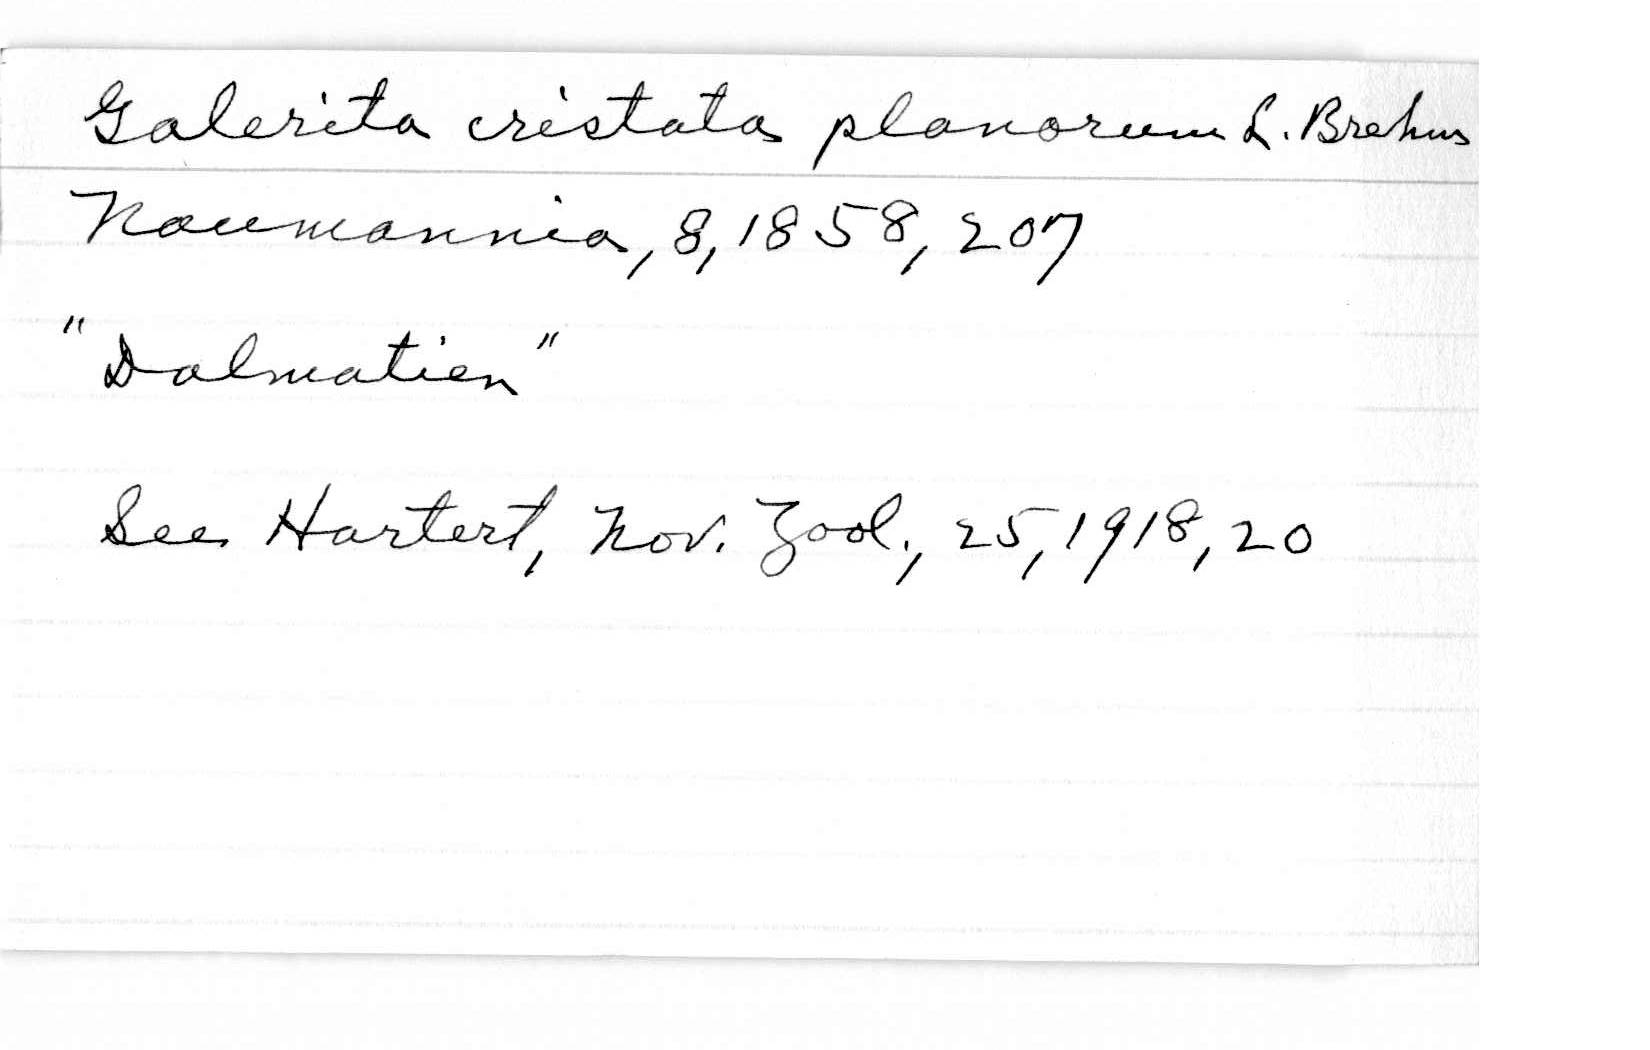 Galerita cristata planorum L. Brehm
Naumannia, 8, 1858, 207
"Dalmatien"
See Hartert, Nov. Zool., 25, 1918, 20